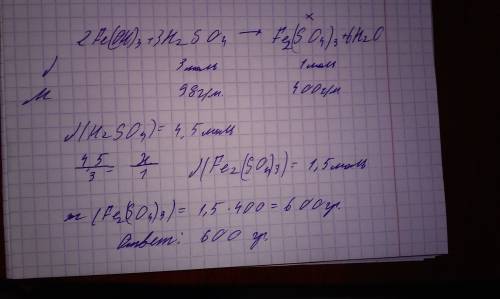 x
2Fe(OH)3+3H2SO4 → Fe2(SO4)3+6H2O
ν 3моль 1моль
M 98гр. 400гр
ν(H2SO4)= 4,5моль
4,5/3 = x/1 ν(Fe2(SO4)3)= 1,5моль
m(Fe2(SO4)3)= 1,5·400=600гр.
Ответ: 600 гр.